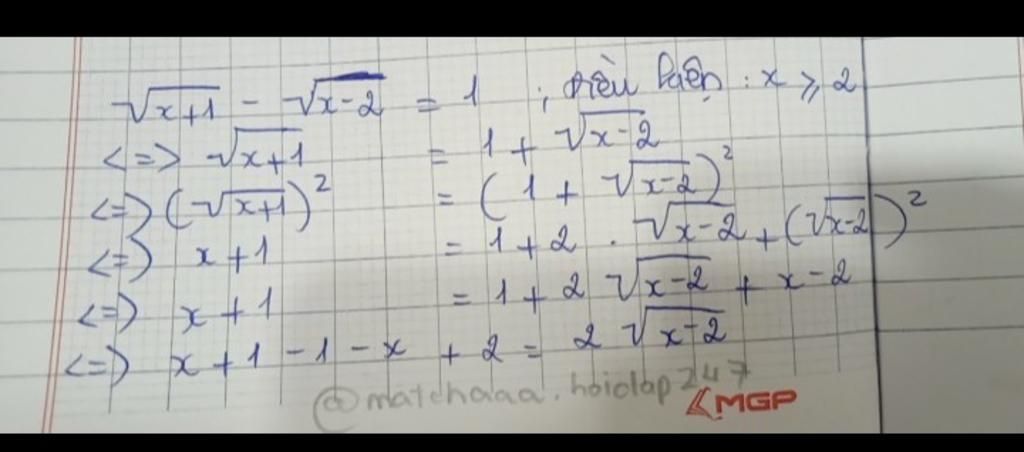 √(x+1) - √(x-2) = 1 ; Điều kiện : x ⩾ 2
<=> √(x+1) = 1 + √(x-2)
<=> (√(x+1))² = (1 + √(x-2))²
<=> x+1 = 1 + 2 . √(x-2) + (√(x-2))²
<=> x+1 = 1 + 2 √(x-2) + x-2
<=> x+1-1-x+2 = 2 √(x-2)
@matchaaa.hoidap247
MGP